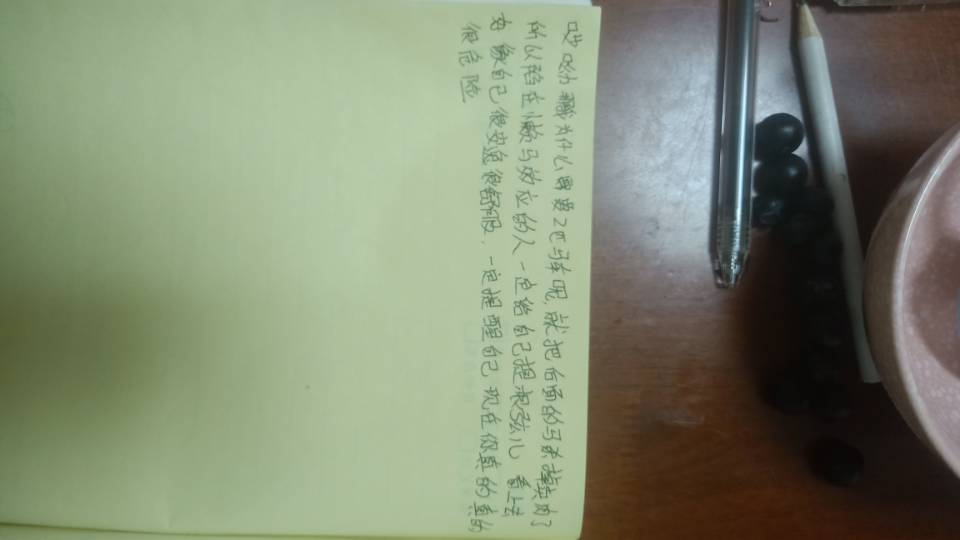 哟 嚯 为什么要要2匹马车呢，就把后面的马杀掉的了
所以陷在懒马效应的人一定给自己提根弦儿 看上去
自己很安逸很舒服，一定提醒自己 现在你真的真的
很危险